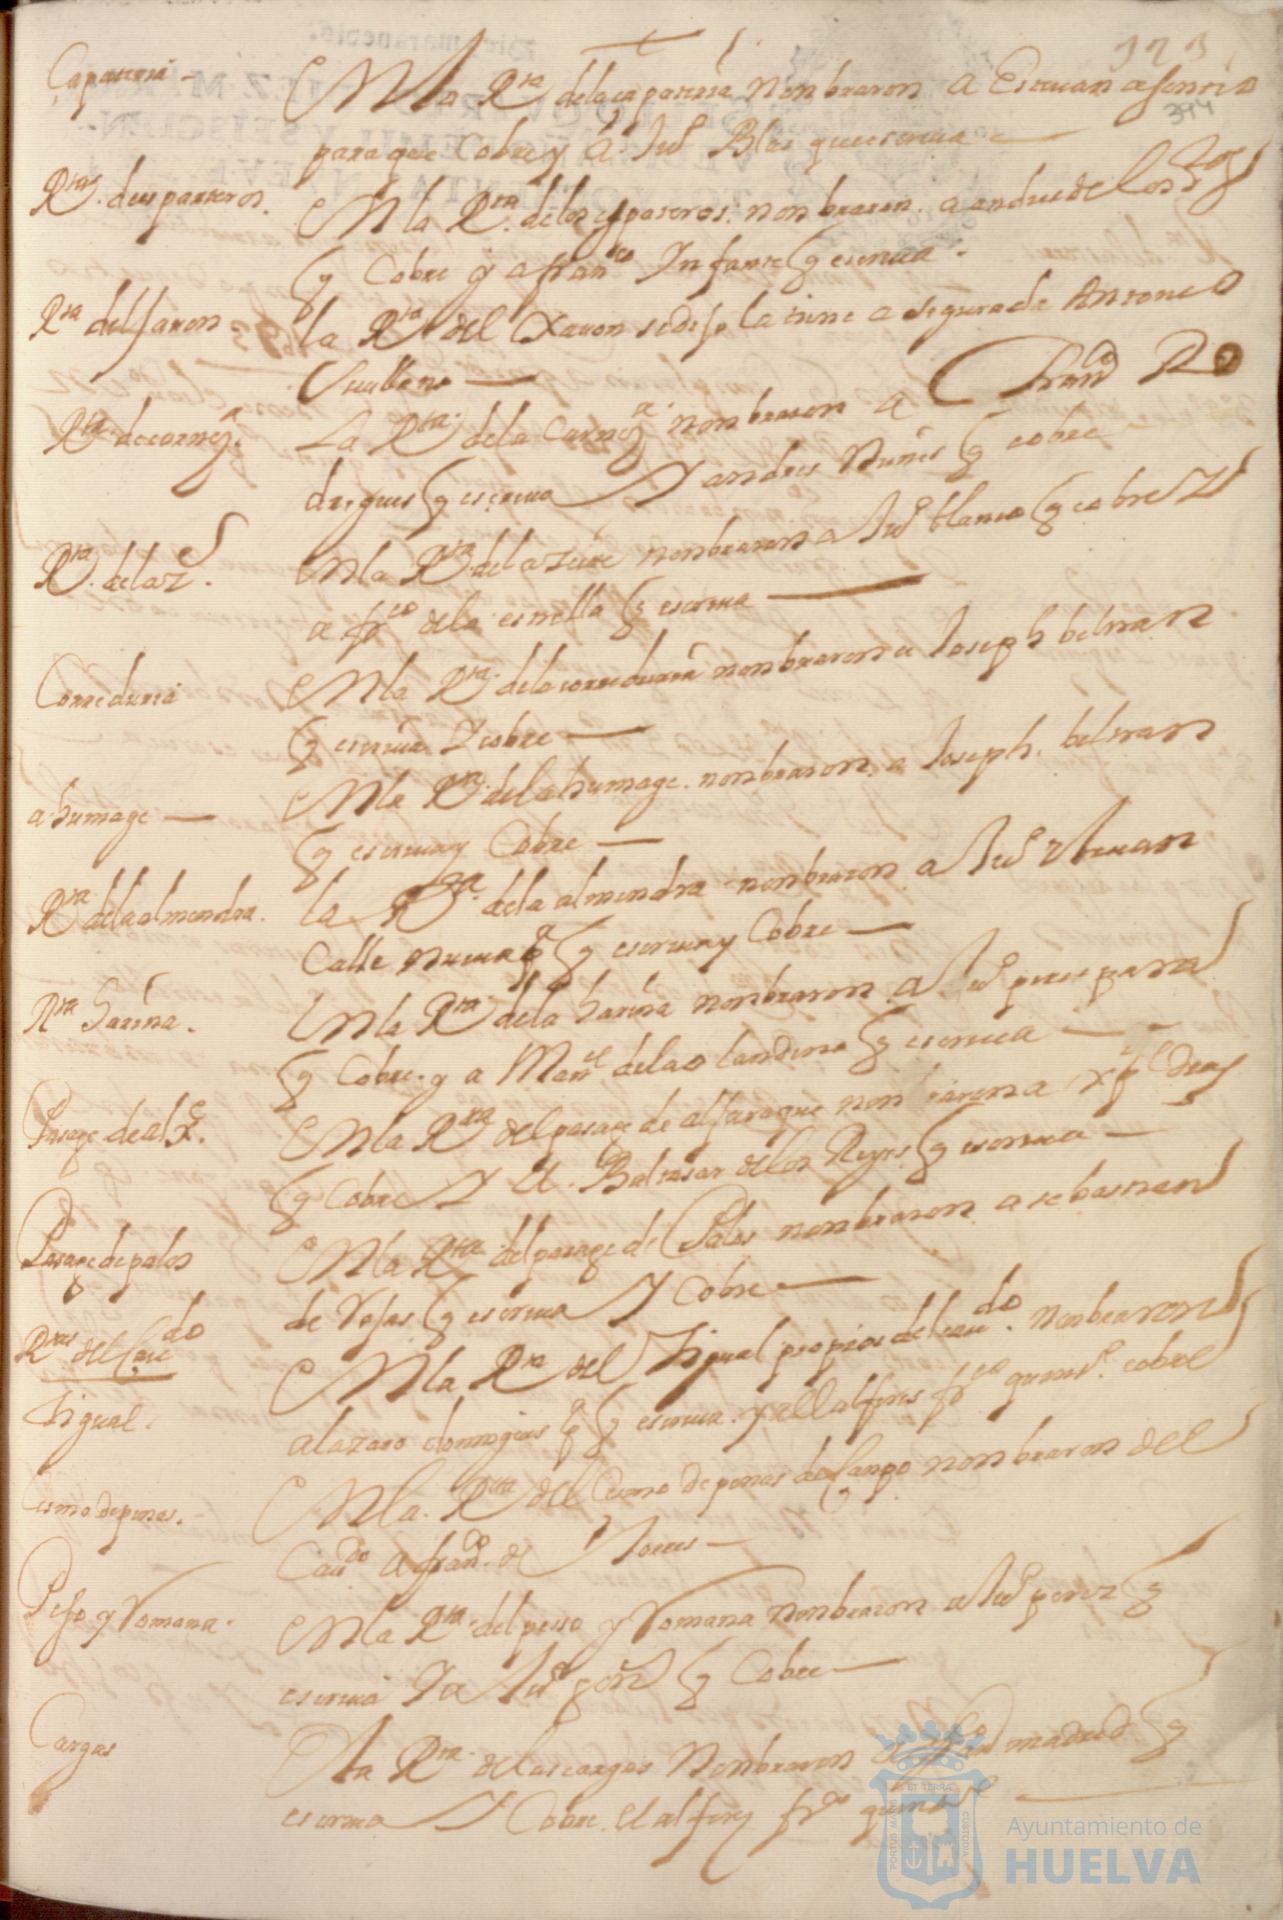 373
394
Çapateria — En la Rta de la çapateria nonbraron a Esteuan asensio
para que Cobre y a Juº Blas que escriua
Rtas. de esparteros. En la Rta de los esparteros. nonbraron. a andres de los Ros
q Cobre y a franco Infante q escriua.
Rta del Jauon la Rta del Xauon se dejo la tiene asegurada Antonio
Seuillano —
Rta de carneª. La Rta de la Carneª. nonbraron a Franº Ro
drigues q escriua Y andres Nunes q cobre
Rta. del az. En la Rta del azeite nonbraron a Juº blanco q cobre Y
a frco de la estrella q escriua
Correduria En la Rta. de la correduria nonbraron a Joseph beltran
q escriua Y cobre —
ahumage — En la Rta. del ahumage. nonbraron. a Joseph. beltran
q escriua y Cobre —
Rta de la almendra. la Rta. de la almendra nonbraron. a Juº
Calle nueua pª q escriua y Cobre —
Rta harina. En la Rta de la harina nonbraron. a Juº peres para
q Cobre. y a Manl de la o q escriua —
Pasage de alx. En la Rta del pasage de alfaraque nonbraron a xpl Dias
q Cobre Y a. Baltasar de los Reyes q escriua —
Pasage de palos En la Rta del pasage de Palos nonbraron a sebastian
de Rojas q escriua Y Cobre —
Rtas del Caudo
Tigual. En la Rta del Tigual propios del caudo. nonbraron
a lazaro domingues pª q escriua. y al alferes frco quintº. cobre
 de penas. En la. Rta del de penas de Canpo nonbraron del
Caudo a franº. de Torres —
Peso y Romana. En la Rta. del peso y Romana nonbraron a Juº perez q
escriua Y a Juº gon q Cobre —
Cargas En la Rta. de las cargas Nonbraron madrid q
escriua Y Cobre. el alferes frco quintº
PORTUS MARIS ET TERRAE CUSTODIA
Ayuntamiento de
HUELVA